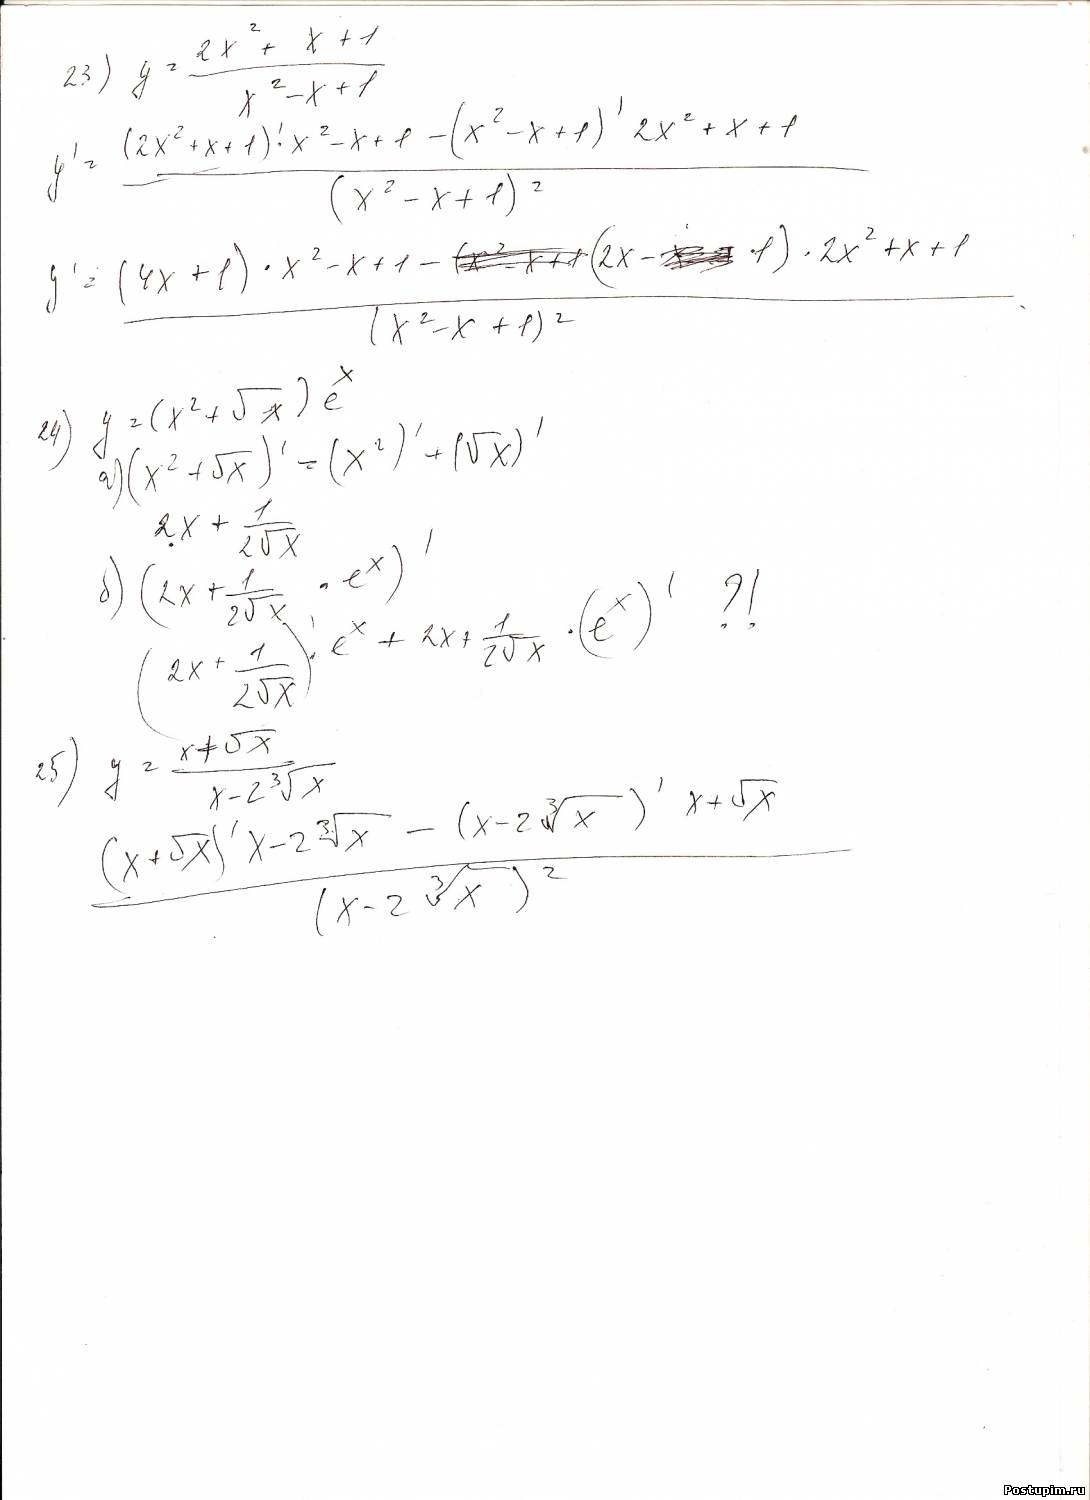 23) y = (2x² + x + 1)/(x² - x + 1)
y' = ((2x² + x + 1)' · x² - x + 1 - (x² - x + 1)' 2x² + x + 1)/(x² - x + 1)²
y' = ((4x + 1) · x² - x + 1 - (2x - 1) · 2x² + x + 1)/(x² - x + 1)²
24) y = (x² + √x) eˣ
а) (x² + √x)' = (x²)' + (√x)'
2x + 1/(2√x)
б) (2x + 1/(2√x) · eˣ)'
(2x + 1/(2√x))' · eˣ + 2x + 1/(2√x) · (eˣ)' ?!
25) y = (x + √x)/(x - 2∛x)
((x + √x)' x - 2∛x - (x - 2∛x)' x + √x)/(x - 2∛x)²
Postupim.ru